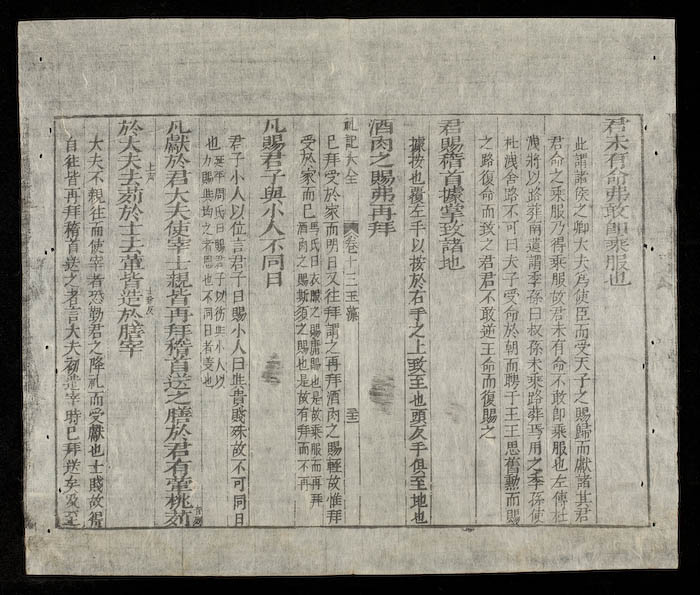 君未有命弗敢卽乘服也
此謂諸侯之卿大夫爲使臣而受天子之賜歸而獻諸其君
君命之乘服乃得乘服故君未有命不敢卽乘服也左傳杜
洩將以路葬南遺謂季孫曰叔孫未乘路葬焉用之季孫使
杜洩舍路不可曰夫子受命於朝而聘于王王思舊勳而賜
之路復命而致之君君不敢逆王命而復賜之
君賜稽首據掌致諸地
據按也覆左手以按於右手之上致至也頭及手俱至地也
酒肉之賜弗再拜
礼記大全 卷十三玉藻
已拜受於家而明日又往拜謂之再拜酒肉之賜輕故惟拜
受於家而已
馬氏曰衣服之賜庸賜也是故乘服而再拜
酒肉之賜斯須之賜也是故有拜而不再
凡賜君子與小人不同日
君子小人以位言君子曰賜小人曰與貴賤殊故不可同日
也
延平周氏曰賜君子以術與小人以
力賜與均之者恩也不同日者義也
凡獻於君大夫使宰士親皆再拜稽首送之膳於君有葷桃茢
於大夫去茢於士去葷皆造於膳宰
大夫不親往而使宰者恐勤君之降礼而受獻也士賤故得
自往皆再拜稽首送之者言大夫初遣宰時已拜送矣及至